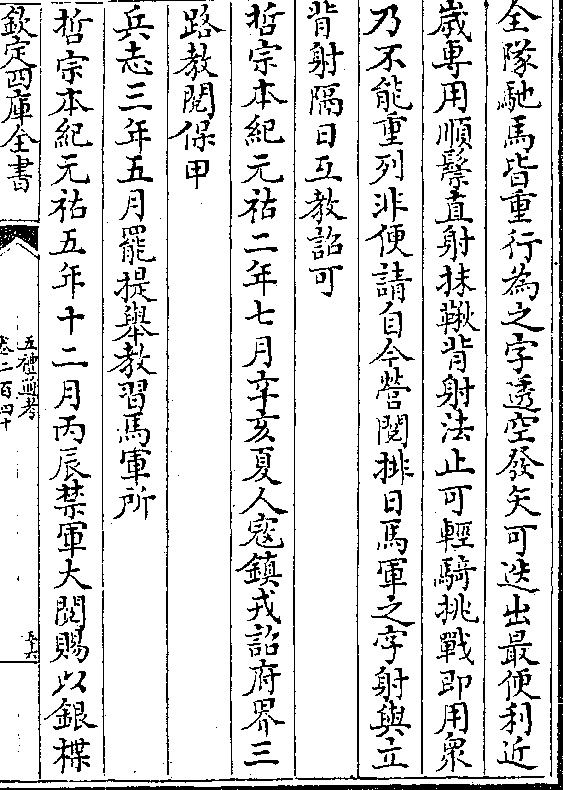 全隊馳馬皆重行為之字透空發矢可迭出最便利近
嵗專用順鬃直射抹鞦背射法止可輕騎挑戰即用衆
乃不能重列非便請自今營閱排日馬軍之字射與立
背射隔日互教詔可
哲宗本紀元祐二年七月辛亥夏人寇鎮戎詔府界三
路教閱保甲
兵志三年五月罷提舉教習馬軍所
哲宗本紀元祐五年十二月丙辰禁軍大閱賜以銀楪
欽定四庫全書
五禮通考
卷二百四十